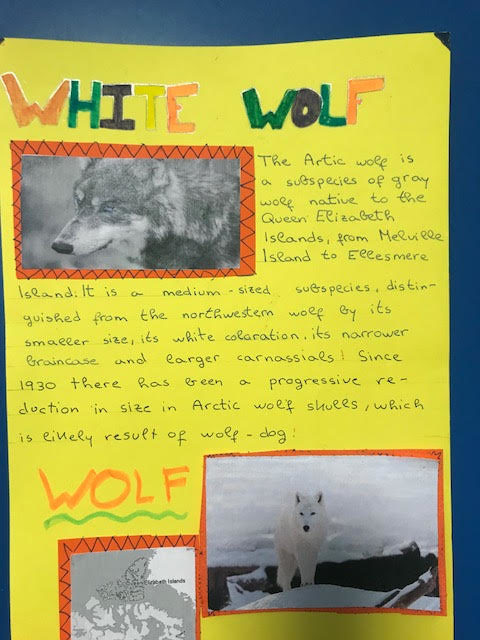 WHITE WOLF
The Artic wolf is
a subspecies of gray
wolf native to the
Queen Elizabeth
Islands, from Melville
Island to Ellesmere
Island. It is a medium-sized subspecies, distin-
guished from the northwestern wolf by its
smaller size, its white coloration, its narrower
braincase and larger carnassials! Since
1930 there has been a progressive re-
duction in size in Arctic wolf skulls, which
is likely result of wolf-dog!
WOLF
Elizabeth Islands